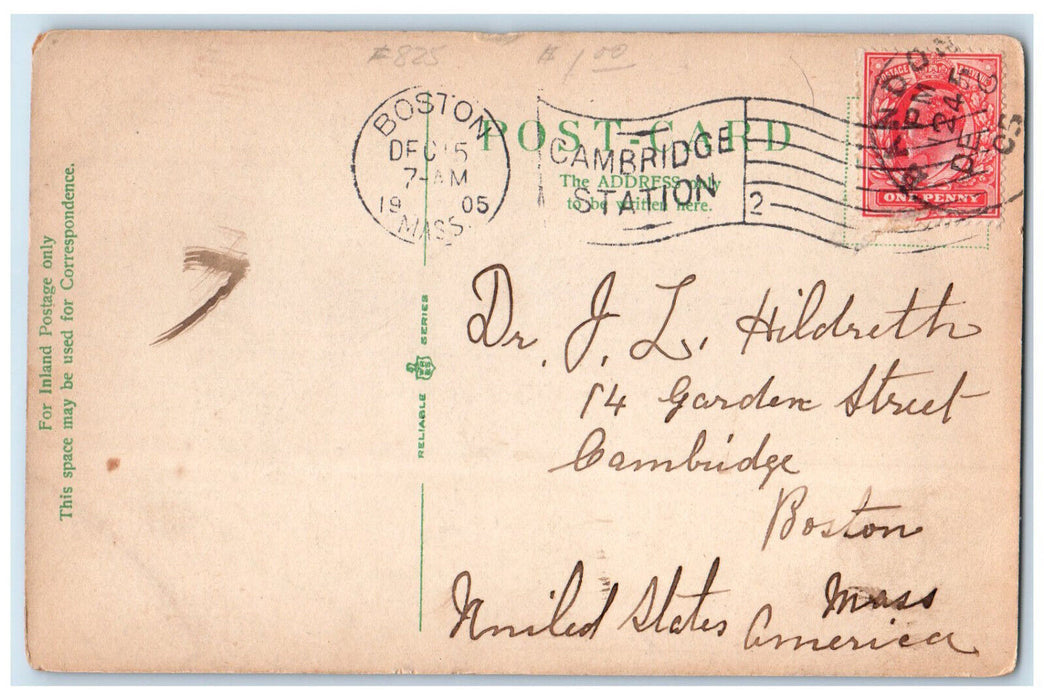 #825
$1.00
BOSTON
DEC 15
7-AM
1905
MASS.
CAMBRIDGE
STATION
2
POST-CARD
The ADDRESS only
to be written here.
POSTAGE
ONE PENNY
PM
DE
05
For Inland Postage only
This space may be used for Correspondence.
RELIABLE SERIES
Dr. J. L. Hildreth
14 Garden Street
Cambridge
Boston
Mass
United States America